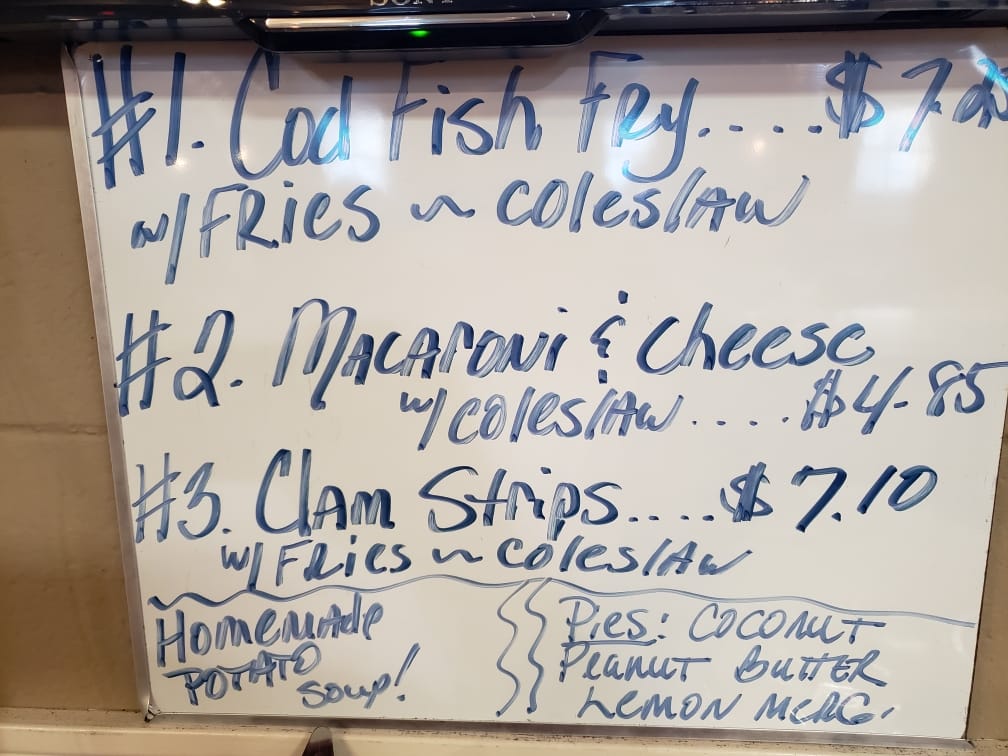 SONY
#1. Cod Fish Fry.....$7.2
w/ FRies ~ coleslAw
#2. MacaRoni & Cheese
w/ coleslAw.....$4.85
#3. ClAm Strips.....$7.10
w/ FRies ~ coleslAw
Homemade
POTATO
soup!
Pies: COCONUT
PeANUT BUTTER
LeMON MeRG.